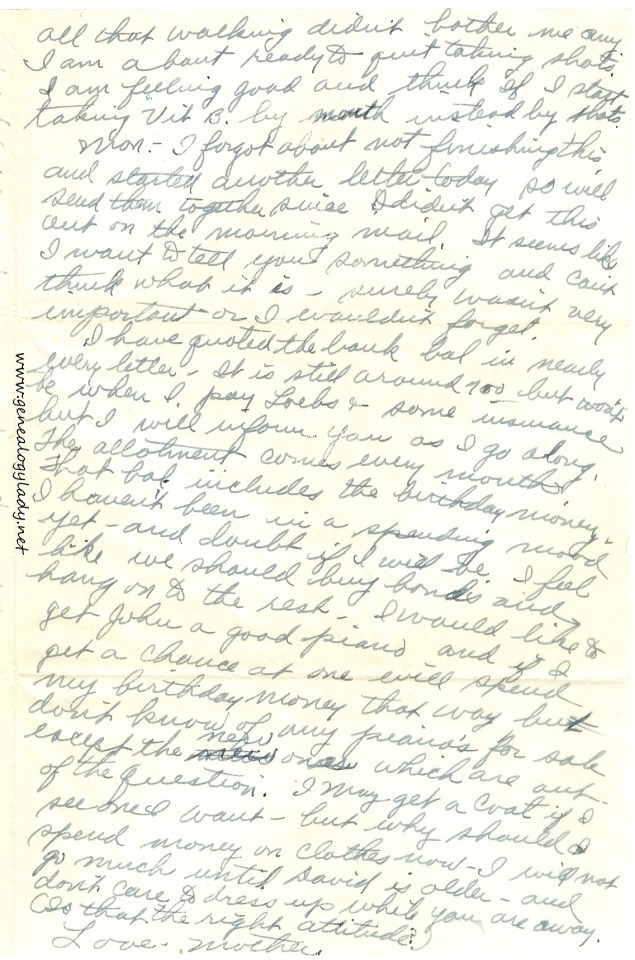 all that walking didn't bother me any
I am about ready to quit taking shots.
I am feeling good and think If I start
taking Vit B. by mouth instead by shots.
Mon. - I forgot about not finishing this
and started another letter today so will
send them together since I didn't get this
out on the morning mail. It seems like
I want to tell you something and can't
think what it is - surely wasn't very
important or I wouldn't forget.
I have quoted the bank bal in nearly
every letter. It is still around 700 but won't
be when I pay Loebs & some insurance
but I will inform you as I go along.
The allotment comes every month
That bal, includes the birthday money.
I haven't been in a spending mood
yet - and doubt if I will be. I feel
like we should buy bonds and
hang on to the rest - I would like to
get John a good piano and if I
get a chance at one will spend
my birthday money that way but
don't know of any piano's for sale
except the new ones which are out-
of the question. I may get a coat if I
see one I want - but why should I
spend money on clothes now - I will not
go much until David is older - and
don't care to dress up while you are away.
(Is that the right attitude?)
Love - Mother.
www.genealogylady.net